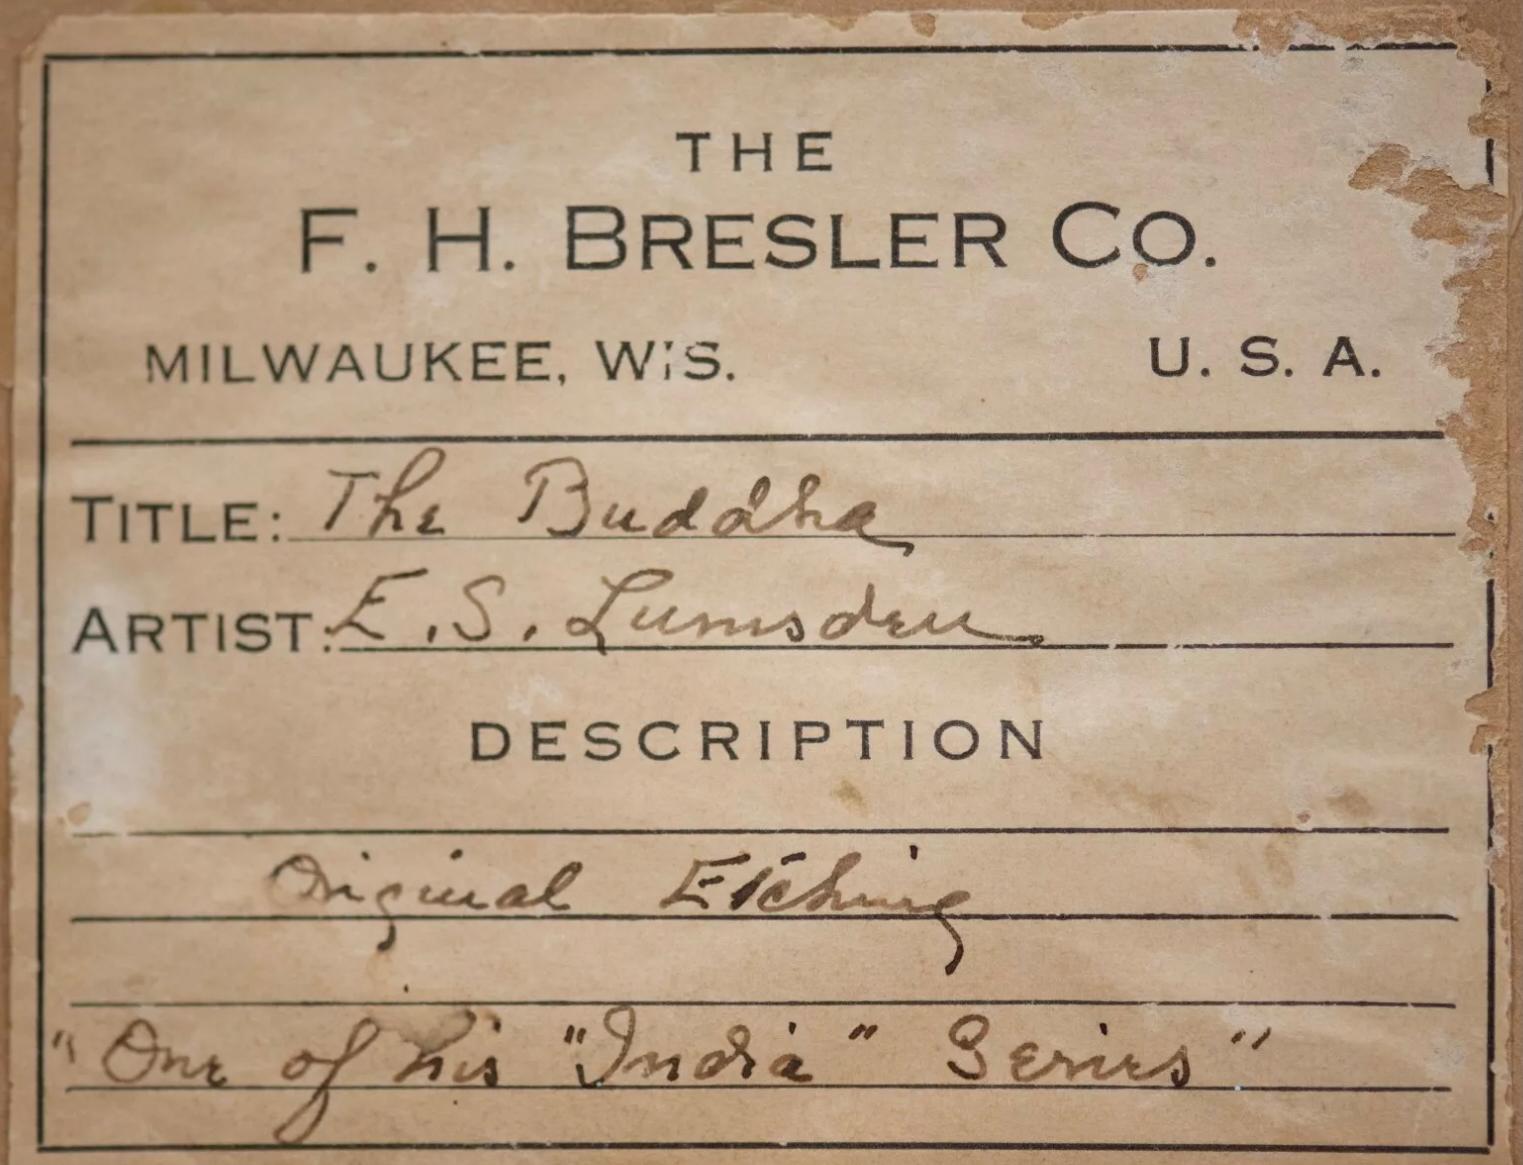 THE
F. H. BRESLER CO.
MILWAUKEE, WIS. U. S. A.
TITLE: The Buddha
ARTIST: E. S. Lumsden
DESCRIPTION
Original Etching
"One of his "India" Series"